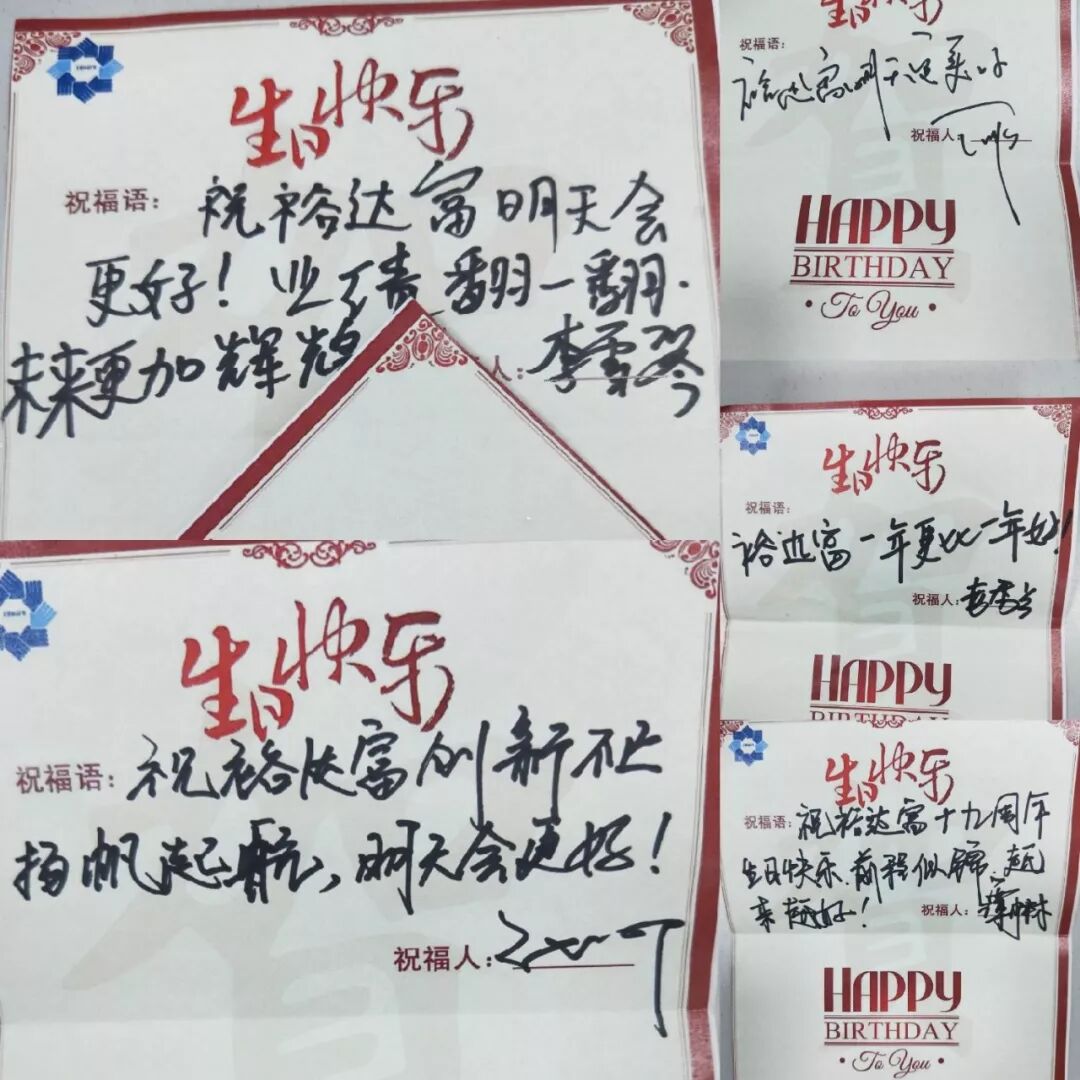 生日快乐
祝福语：祝裕达富明天会
更好！业绩翻一翻.
未来更加辉煌
人：李雪琴
生日快乐
祝福语：祝裕达富创新不止
扬帆起航，明天会更好！
祝福人：
生日快乐
祝福语：
裕达富明天更美好
祝福人：
HAPPY
BIRTHDAY
• To You •
生日快乐
祝福语：
裕达富一年更比一年好！
祝福人：
HAPPY
BIRTHDAY
生日快乐
祝福语：祝裕达富十九周年
生日快乐.前程似锦、越
来越好！
祝福人：
HAPPY
BIRTHDAY
• To You •